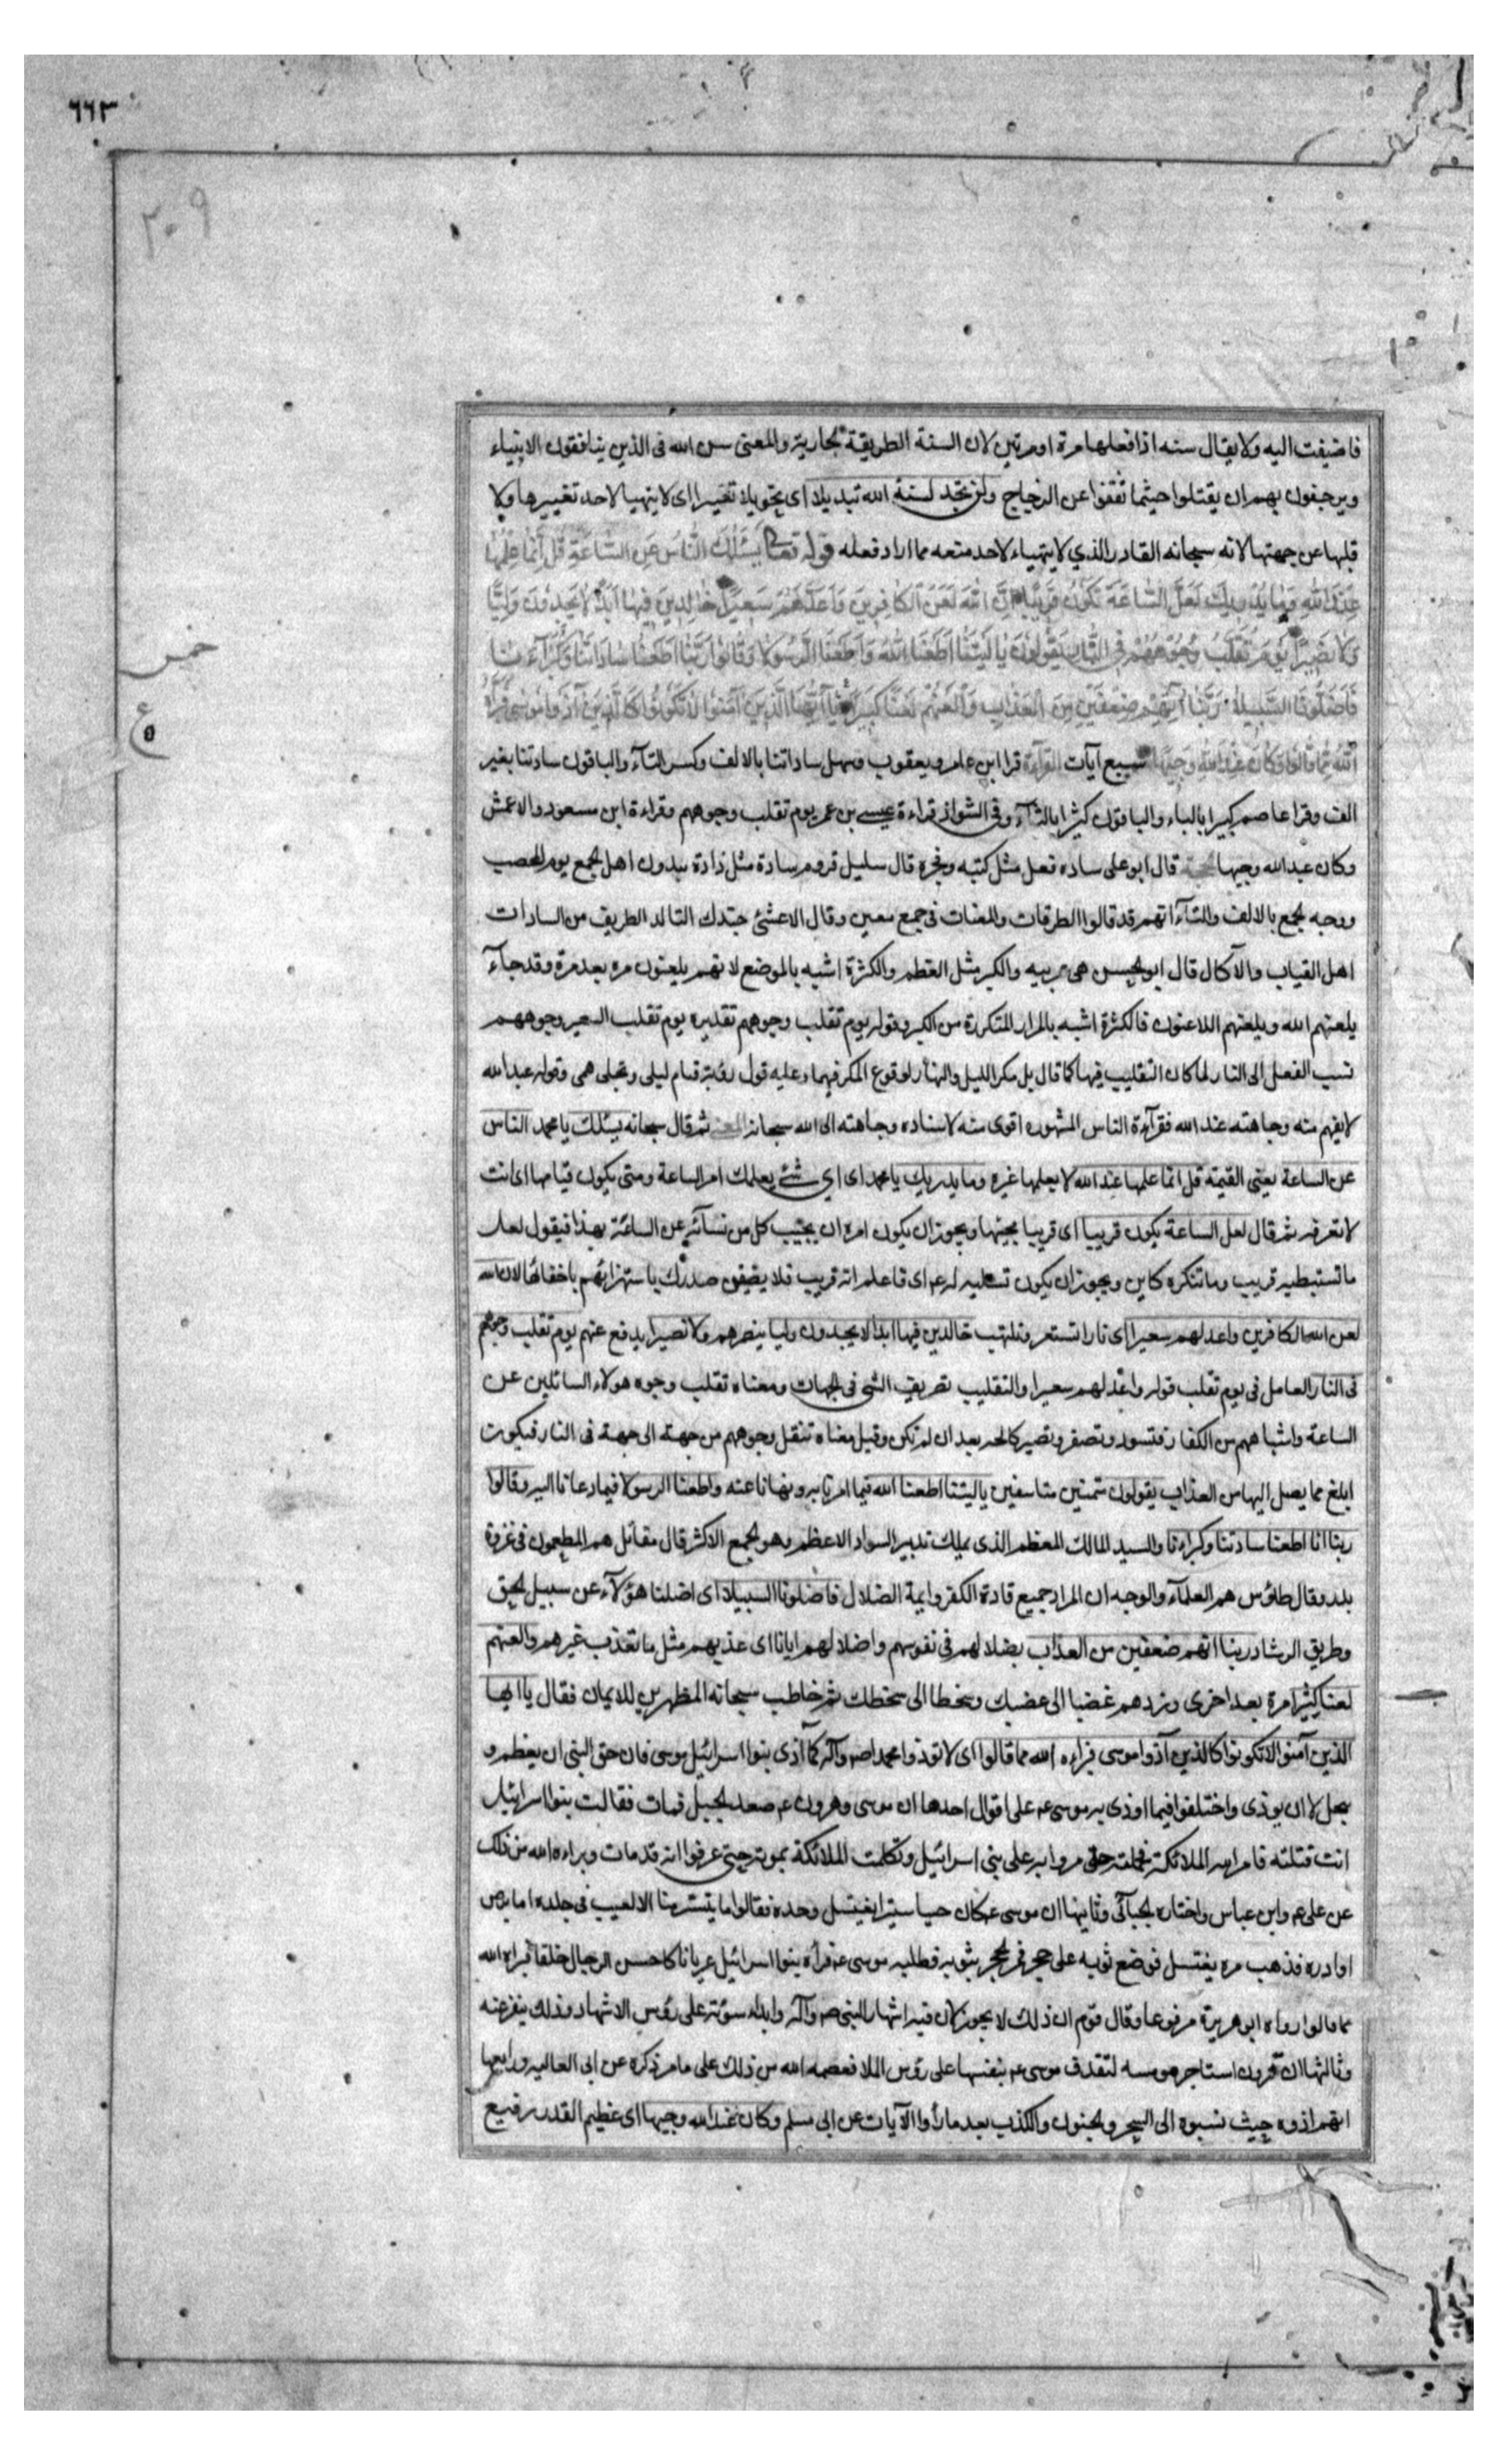 ٦٦٣
٢٠٩
فاضيفت اليه ولا يقال سنه اذا فعلها مرة او مرتين لان السنة الطريقة الجارية والمعنى سن الله فى الذين ينافقون الانبياء
ويرجفون بهم ان يقتلوا حيثما ثقفوا عن الزجاج ولن تجد لسنة الله تبديلا اى تحويلا تغييرا اى لا يتهيا لاحد تغييرها ولا
قلبها عن جهتها لانه سبحانه القادر الذي لا يتهياء لاحد منعه مما اراد فعله قوله تعالى يَسْئَلُكَ النَّاسُ عَنِ السَّاعَةِ قُلْ اِنَّمَا عِلْمُهَا
عِنْدَ اللهِ وَمَا يُدْرِيكَ لَعَلَّ السَّاعَةَ تَكُونُ قَرِيبًا اِنَّ اللهَ لَعَنَ الْكَافِرِينَ وَاَعَدَّ لَهُمْ سَعِيرًا خَالِدِينَ فِيهَا اَبَدًا لَا يَجِدُونَ وَلِيًّا
وَلَا نَصِيرًا يَوْمَ تُقَلَّبُ وُجُوهُهُمْ فِى النَّارِ يَقُولُونَ يَا لَيْتَنَا اَطَعْنَا اللهَ وَاَطَعْنَا الرَّسُولَا وَقَالُوا رَبَّنَا اِنَّا اَطَعْنَا سَادَاتَنَا وَكُبَرَآءَنَا
فَاَضَلُّونَا السَّبِيلَا رَبَّنَا آتِهِمْ ضِعْفَيْنِ مِنَ الْعَذَابِ وَالْعَنْهُمْ لَعْنًا كَبِيرًا يَا اَيُّهَا الَّذِينَ آمَنُوا لَا تَكُونُوا كَالَّذِينَ آذَوْا مُوسَى فَبَرَّاَهُ
اللهُ مِمَّا قَالُوا وَكَانَ عِنْدَ اللهِ وَجِيهًا سبع آيات القراءة قرا ابن عامر ويعقوب وسهل ساداتنا بالالف وكسر التآء والباقون سادتنا بغير
الف وقرا عاصم كبيرا بالباء والباقون كثيرا بالثآء وفى الشواذ قراءة عيسى بن عمر يوم تقلب وجوههم وقراءة ابن مسعود والاعمش
وكان عبدالله وجيها الحجة قال ابو على ساده فعل مثل كتبه وفجره قال سليل قروم سادة مثل ذادة يبدون اهل الجمع يوم المحصب
ووجه الجمع بالالف والتآء انهم قد قالوا الطرقات والمعنات فى جمع معين وقال الاعشى جندك التالد الطريف من السادات
اهل القباب والآكال قال ابو الحسن هى عربيه والكبر مثل العظم والكثرة اشبه بالموضع لانهم يلعنون مره بعد مرة وقد جآء
يلعنهم الله ويلعنهم اللاعنون فالكثرة اشبه بالمرار المتكررة من الكبر وقوله يوم تقلب وجوههم تقديره يوم تقلب السعير وجوههم
نسب الفعل الى النار لما كان التقليب فيها كما قال بل مكر الليل والنهار لوقوع المكر فيهما وعليه قول رؤبة فنام ليلى وتجلى همى وقوله عبدالله
لا يفهم منه وجاهته عند الله فقرآءة الناس المشهوره اقوى منه لاسناده وجاهته الى الله سبحانه المعنى ثم قال سبحانه يسئلك يا محمد الناس
عن الساعة يعنى القيمة قل انما علمها عند الله لا يعلمها غيره وما يدريك يا محمد اى اي شئ يعلمك امر الساعة ومتى يكون قيامها اى انت
لا تعرفه ثم قال لعل الساعة يكون قريبا اى قريبا مجيئها ويجوز ان يكون امره ان يجيب كل من تسآئله عن الساعة بهذا فيقول لعل
ما تستبطيه قريب وما تنكره كاين ويجوز ان يكون تسليه له ع اى فاعلم انه قريب فلا يضيقن صدرك باستهزائهم باخفائها لان الله
لعن الله الكافرين واعد لهم سعيرا اى نارا تستعر وتلتهب خالدين فيها ابدا لا يجدون وليا ينصرهم ولا نصيرا يدفع عنهم يوم تقلب وجوههم
فى النار العامل فى يوم تقلب قوله واعد لهم سعيرا والتقليب تصريف الشى فى الجهات ومعناه تقلب وجوه هولاء السائلين عن
الساعة واشباههم من الكفار فتسود وتصفر وتصير كالحه بعد ان لم تكن وقيل معناه تنقل وجوههم من جهة الى جهة فى النار فيكون
ابلغ مما يصل اليها من العذاب يقولون متمنين متاسفين يا ليتنا اطعنا الله فيما امرنا به ونهانا عنه واطعنا الرسولا فيما دعانا اليه وقالوا
ربنا انا اطعنا سادتنا وكبراءنا والسيد المالك المعظم الذى يملك تدبير السواد الاعظم وهو الجمع الاكثر قال مقاتل هم المطعمون فى غزوة
بدر وقال طاؤس هم العلمآء والوجه ان المراد جميع قادة الكفر وايمة الضلال فاضلونا السبيلا اى اضلنا هؤلآء عن سبيل الحق
وطريق الرشاد ربنا اتهم ضعفين من العذاب بضلالهم فى نفوسهم واضلالهم ايانا اى عذبهم مثل ما تعذب غيرهم والعنهم
لعنا كثيرا مرة بعد اخرى وزدهم غضبا الى غضبك وسخطا الى سخطك ثم خاطب سبحانه المظهرين للايمان فقال يا ايها
الذين آمنوا لا تكونوا كالذين آذوا موسى فبراءه الله مما قالوا اى لا توذوا محمدا ص وآله كما آذى بنوا اسرائيل موسى فان حق النبى ان يعظم و
يبجل لا ان يوذى واختلفوا فيما اوذى به موسى ع على اقوال احدها ان موسى وهرون ع صعدا الجبل فمات فقالت بنوا اسرائيل
انت قتلته فامر الله الملائكة فحملته حتى مروا به على بنى اسرائيل وتكلمت الملائكة بموته حتى عرفوا انه قد مات وبراءه الله من ذلك
عن على ع وابن عباس واختاره الجبآئى وثانيها ان موسى ع كان حييا ستيرا يغتسل وحده فقالوا ما يتستر منا الا لعيب فى جلده اما برص
او ادره فذهب مره يغتسل فوضع ثوبه على حجر فمر الحجر بثوبه فطلبه موسى ع فراه بنوا اسرائيل عريانا كاحسن الرجال خلقا فبراه الله
مما قالوا رواه ابو هريرة مرفوعا وقال قوم ان ذلك لا يجوز لان فيه اشهار النبى ص وآله وابداء سؤته على رؤس الاشهاد وذلك ينفر عنه
وثالثها ان قرون استاجر مومسه لتقذف موسى ع بنفسها على رؤس الملا فعصمه الله من ذلك على ما مر ذكره عن ابى العاليه ورابعها
انهم اذوه حيث نسبوه الى السحر والجنون والكذب بعد ما رأوا الآيات عن ابى مسلم وكان عند الله وجيها اى عظيم القدر رفيع
خمس
ع
٥